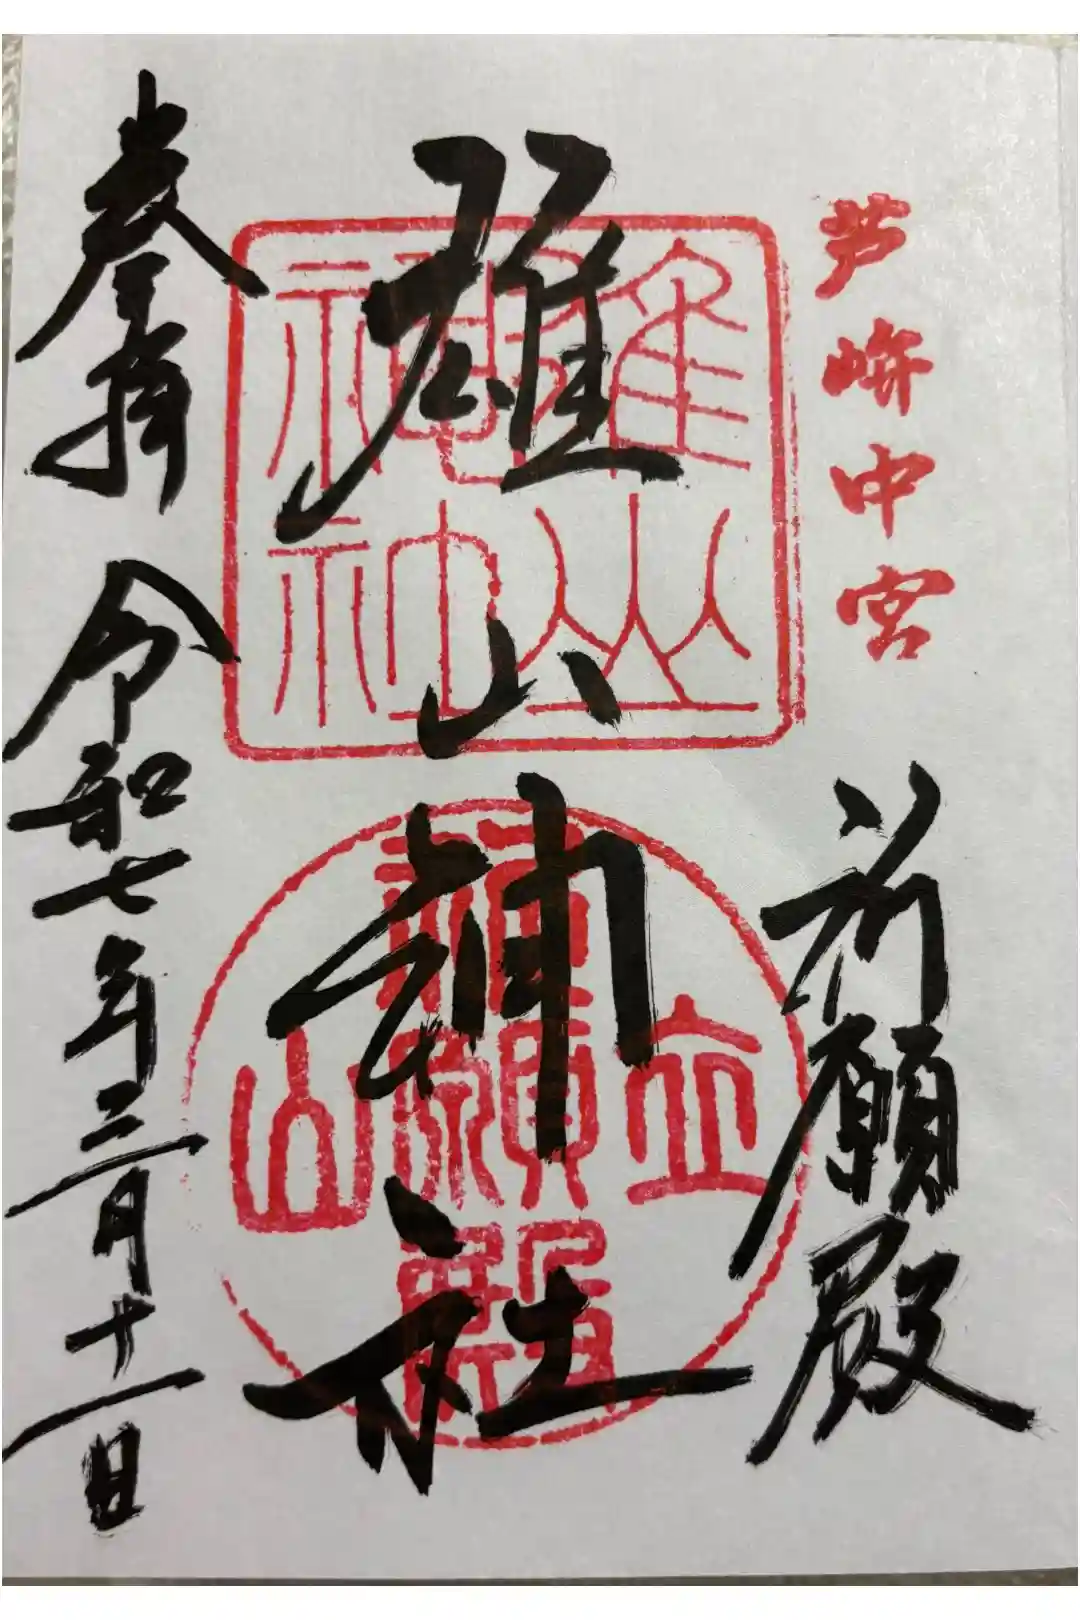 芦峅中宮
祈願殿
雄山神社
雄山神社
立山
祈願殿
奉拝
令和七年三月十一日